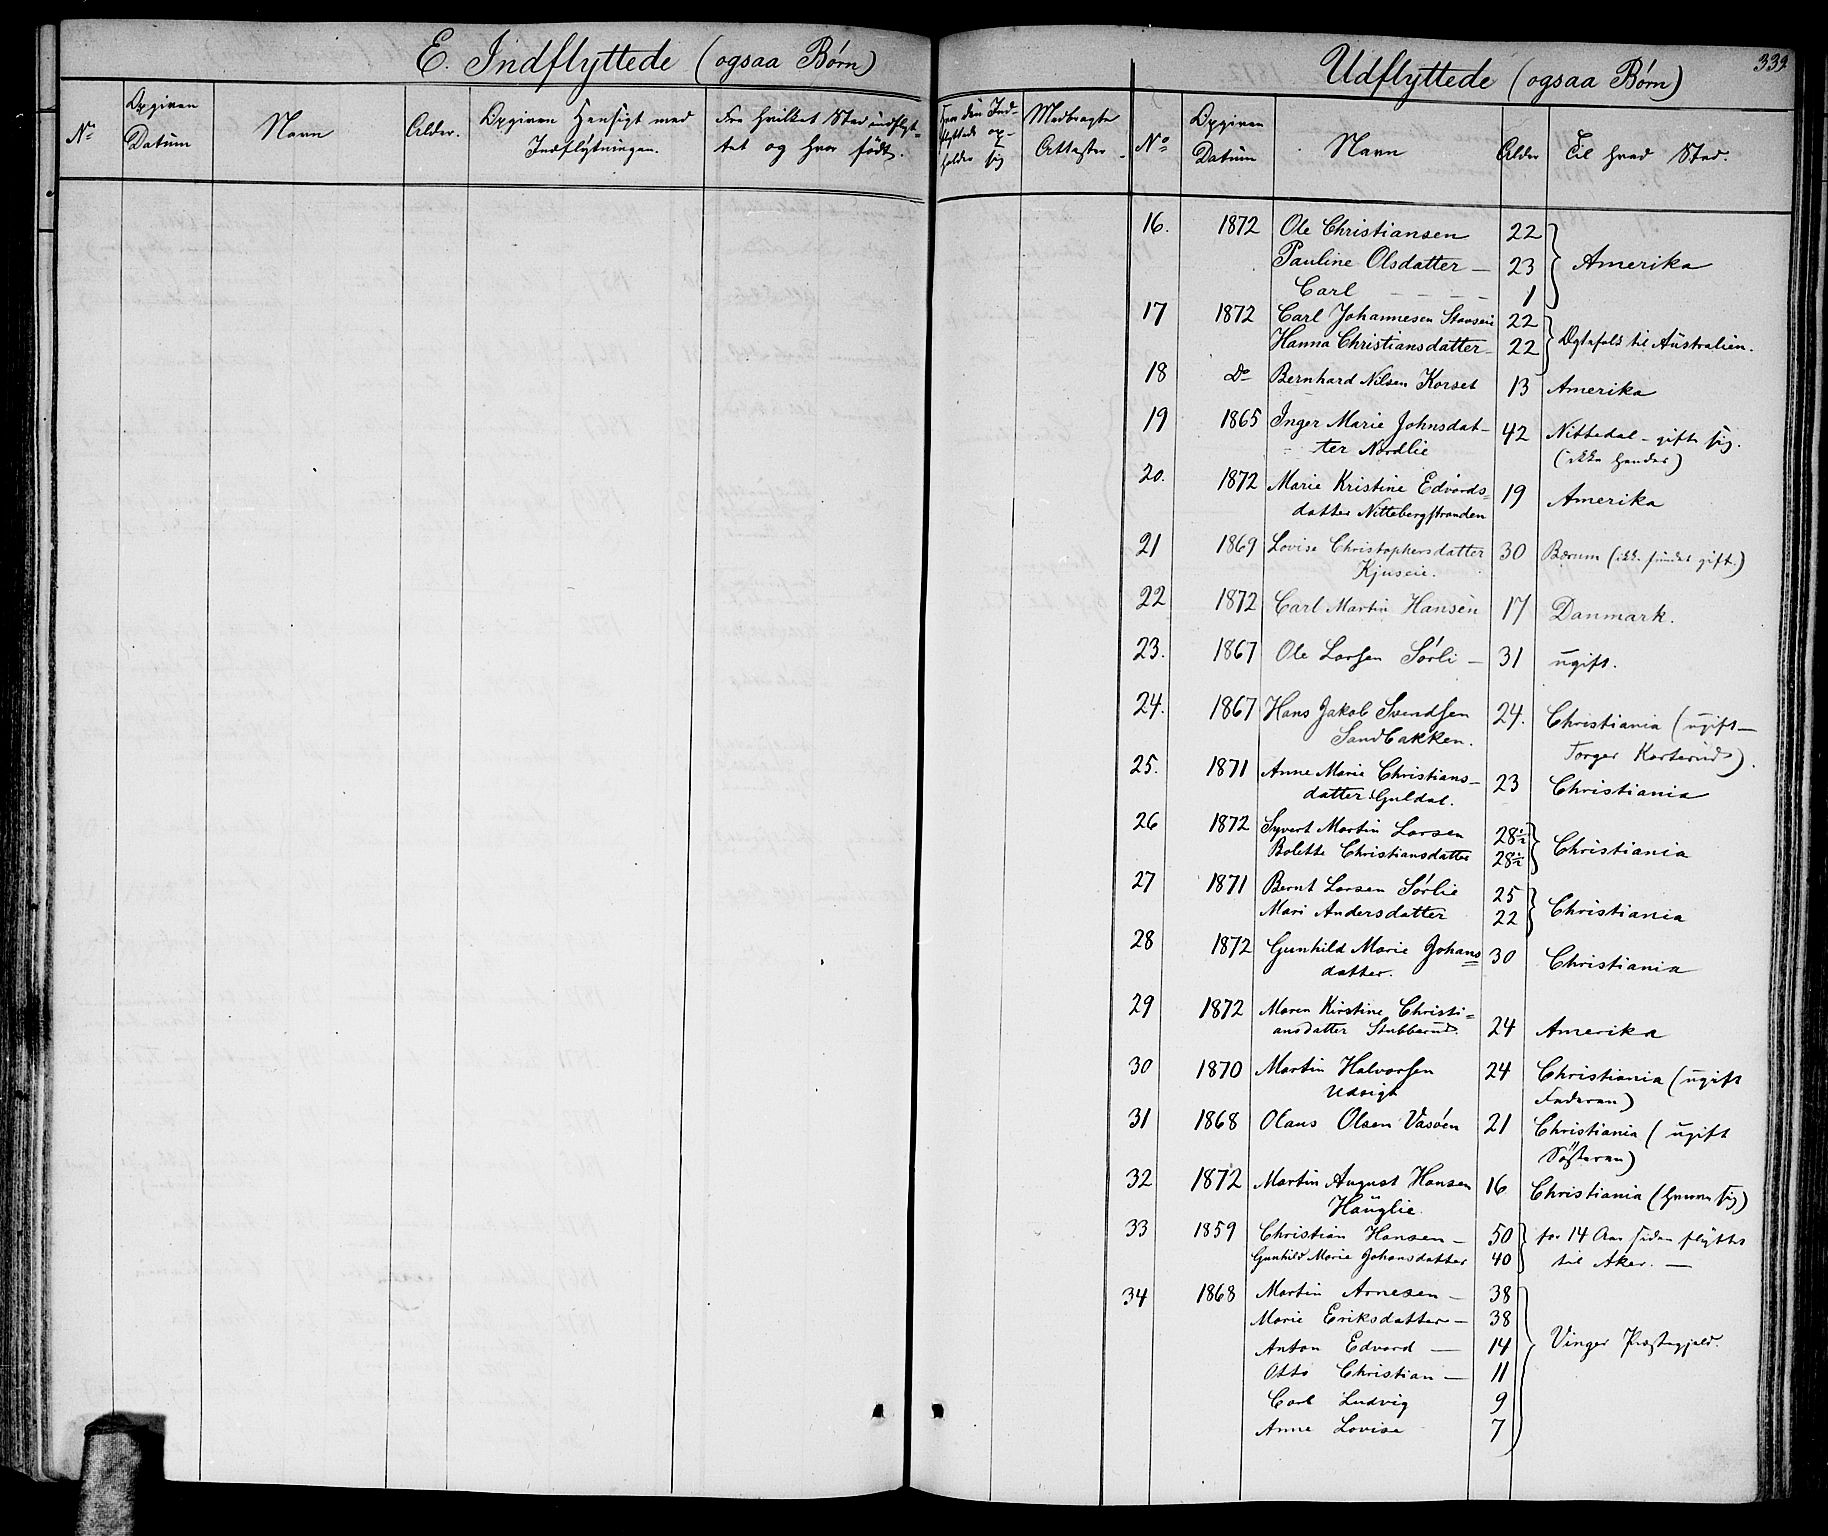 E. Indflyttede (ogsaa Børn)
No
Opgiven Datum
Navn
Alder.
Opgiven Hensigt med Indflytningen.
Fra hvilket Sted indflyt-
tet og hvor født.
Hvor den Ind-
flyttede op-
holder sig
Medbragte Attester
Udflyttede (ogsaa Børn)
339.
No
Opgiven Datum
Navn
Alder
Til hvad Sted.
16. 1872 Ole Christiansen 22
Pauline Olsdatter — 23 Amerika
Carl - - - - 1
17 1872 Carl Johannesen 22
Hanna Christiansdatter 22 Ægtefolk til Australien.
18 Do Bernhard Nilsen Korset 13 Amerika
19 1865 Inger Marie Johnsdat-
ter Nordlie 42 Nittedal - gifte sig.
20. 1872 Marie Kristine Edvards-
datter Nittebergstranden 19 Amerika
21 1869 Lovise Christophersdatter 30 Bærum (ikke fundet gift.)
Kjuseie.
22 1872 Carl Martin Hansen 17 Danmark.
23. 1867 Ole Larsen Sørli — 31 ugift.
24. 1867 Hans Jakob Svendsen 24. Christiania (ugift —
Sandbakken. Torger Korterud).
25. 1871 Anne Marie Christians-
datter Guldal. 23 Christiania
26 1872 Syvert Martin Larsen 28½
Bolette Christiansdatter 28½ Christiania
27 1871 Bernt Larsen Sørlie 25
Mari Andersdatter 22 Christiania
28 1872 Gunhild Marie Johans
datter. 30 Christiania
29 1872 Maren Kirstine Christi-
ansdatter Stubberud. 24 Amerika
30 1870 Martin Halvorsen 24 Christiania (ugift
Udsigt Faderen)
31 1868 Olaus Olsen Vasøen 21 Christiania (ugift
Søsteren)
32 1872 Martin August Hansen 16 Christiania
Hauglie.
33 1859 Christian Hansen — 50 for 14 Aar siden flyttet
Gunhild Marie Johansdatter 40 til Aker. —
34 1868 Martin Arnesen — 38
Marie Eriksdatter — 38
Anton Edvard — 14 Vinger Præstegjeld.
Otto Christian — 11
Carl Ludvig 9
Anne Lovise 7